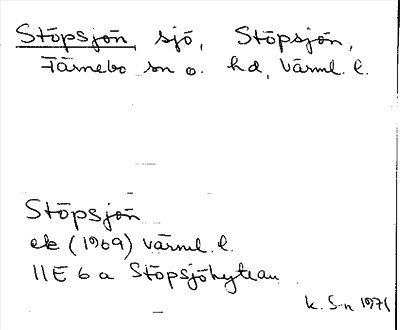 Stöpsjön, sjö, Stöpsjön,
Färnebo sn o. hd, Värml. l.
Stöpsjön
ek (1969) Värml. l.
11E 6a Stöpsjöhyttan
K. S-n 1971